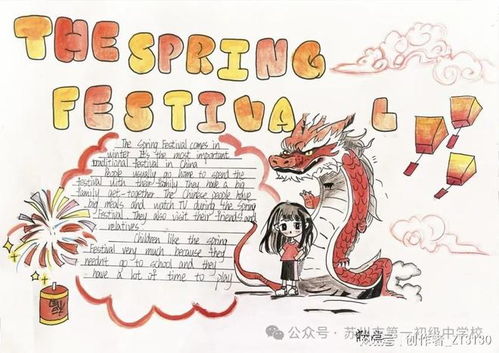 THE SPRING
FESTIVAL
The Spring Festival comes in
winter. It's the most important
traditional festival in China
People usually go home to spend the
festival with their family. They have a big
family get-together. The Chinese people have
big meals and watch TV during the Spring
Festival. They also visit their friends and
relatives.
Children like the Spring
Festival very much because they
needn't go to school and they
have a lot of time to play
公众号·苏州市第一初级中学校
创作者_ZT3130